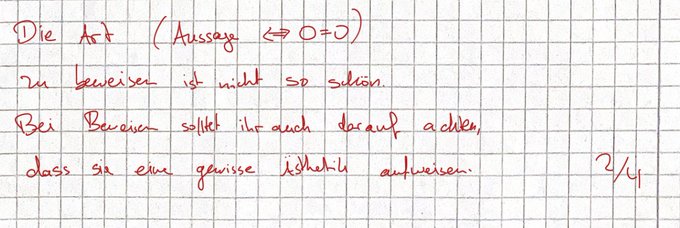 Die Art (Aussage ⇔ 0=0)
zu beweisen ist nicht so schön.
Bei Beweisen solltet ihr auch darauf achten,
dass sie eine gewisse Ästhetik aufweisen. 2/4